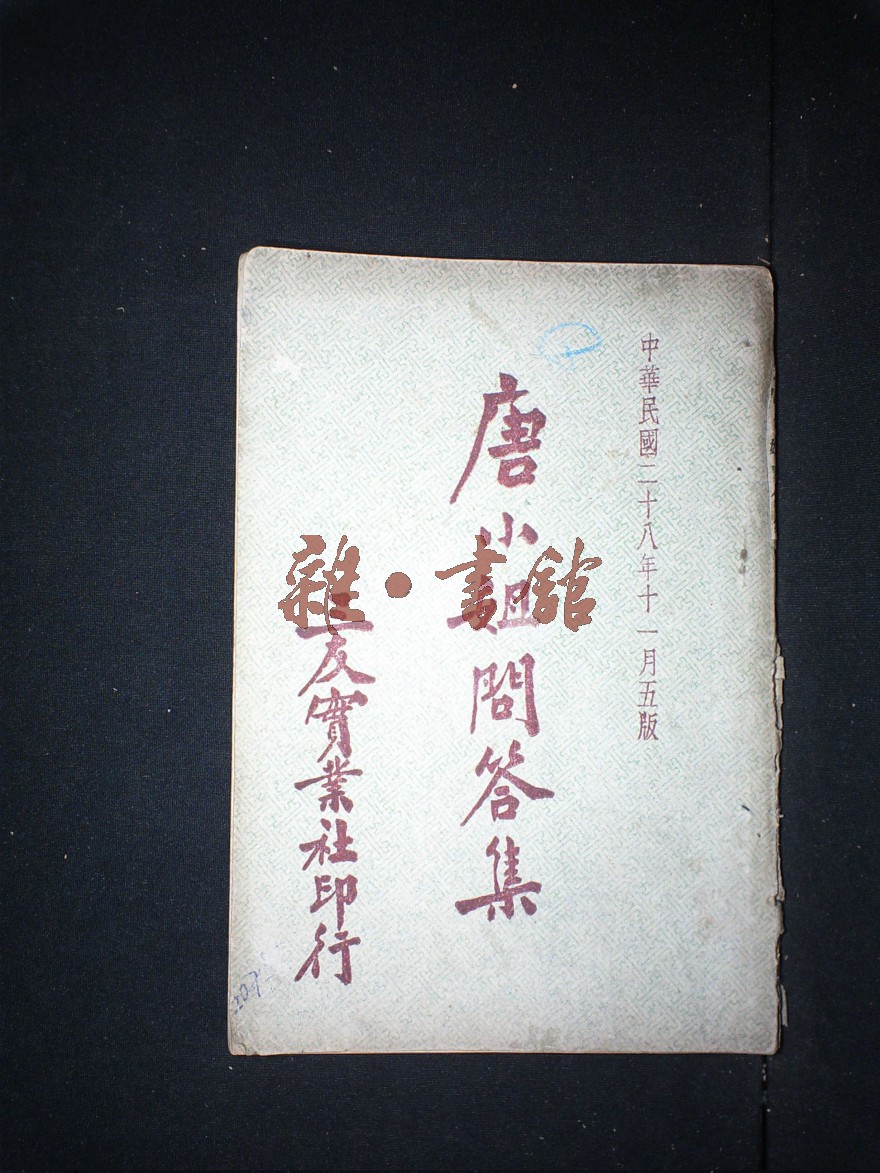 中華民國二十八年十一月五版
唐小姐問答集
三友實業社印行
雜・書館